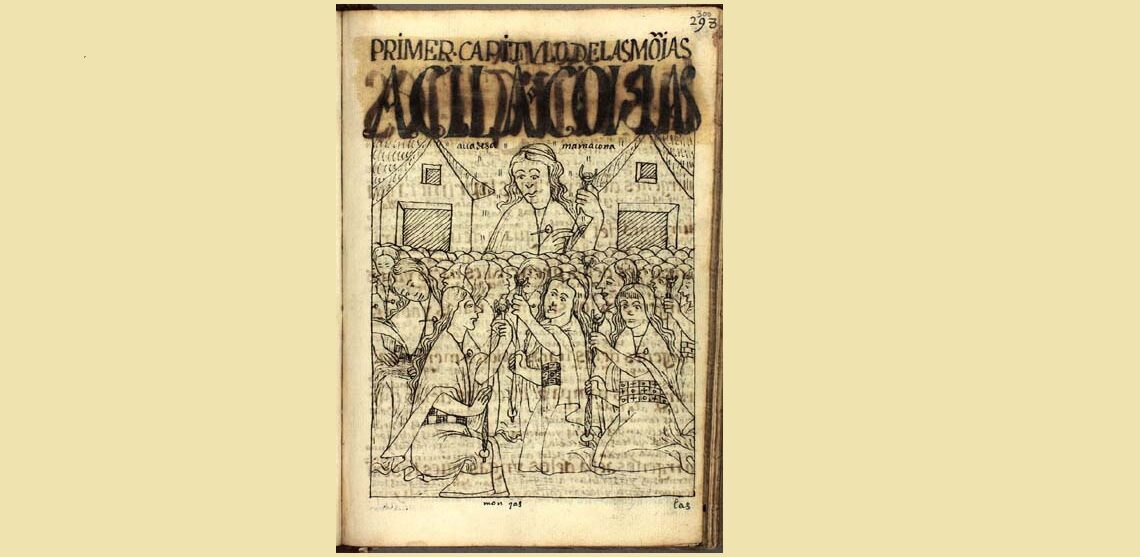 300
298
PRIMER·CAPITVLO·DELASMÕJAS
ACLLA·CONAS
auadesa mamacona
mon jas
las